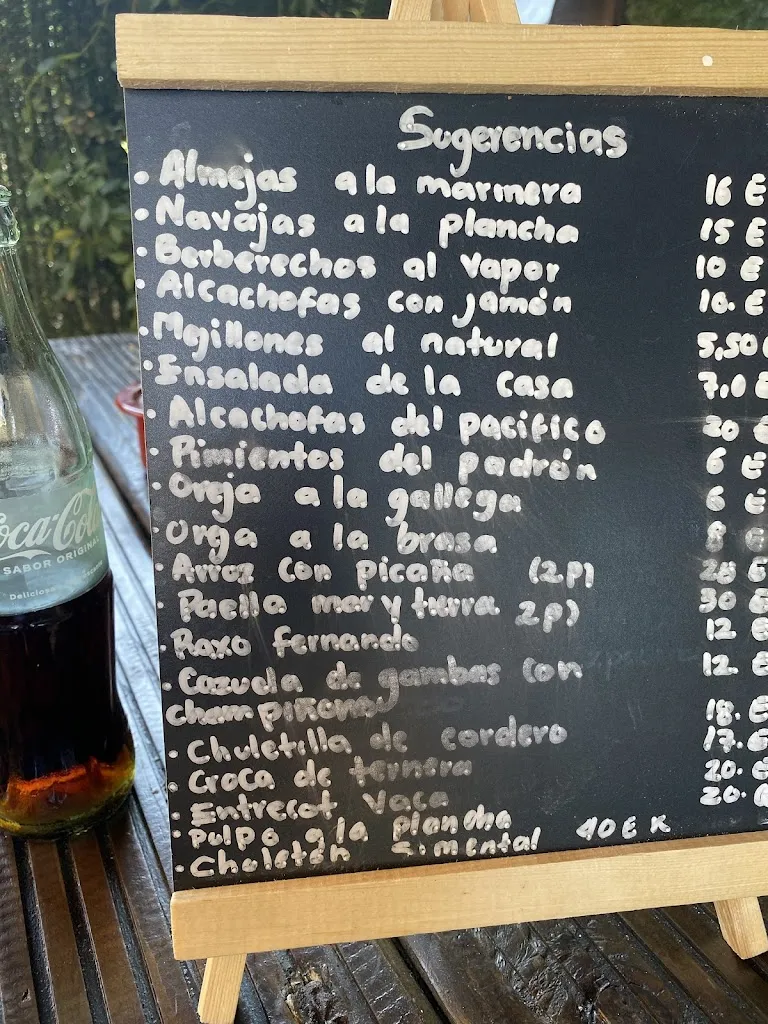 Sugerencias
• Almejas a la marinera 16 E
• Navajas a la plancha 15 E
• Berberechos al vapor 10 E
• Alcachofas con jamón 10. E
• Mejillones al natural 5,50
• Ensalada de la casa 7,0 E
• Alcachofas del pacifico 20 E
• Pimientos del padrón 6 E
• Oreja a la gallega 6 E
• Oreja a la brasa 8 E
• Arroz con picaña (2.P) 28 E
• Paella mar y tierra 2P) 30 E
• Raxo fernando 12 E
• Cazuela de gambas con 12. E
champiñones
• Chuletilla de cordero 18. E
• Croca de ternera 17. E
• Entrecot Vaca 20. E
• Pulpo a la plancha 20. E
• Chuletón Simental 40 E K
Coca-Cola
SABOR ORIGINAL